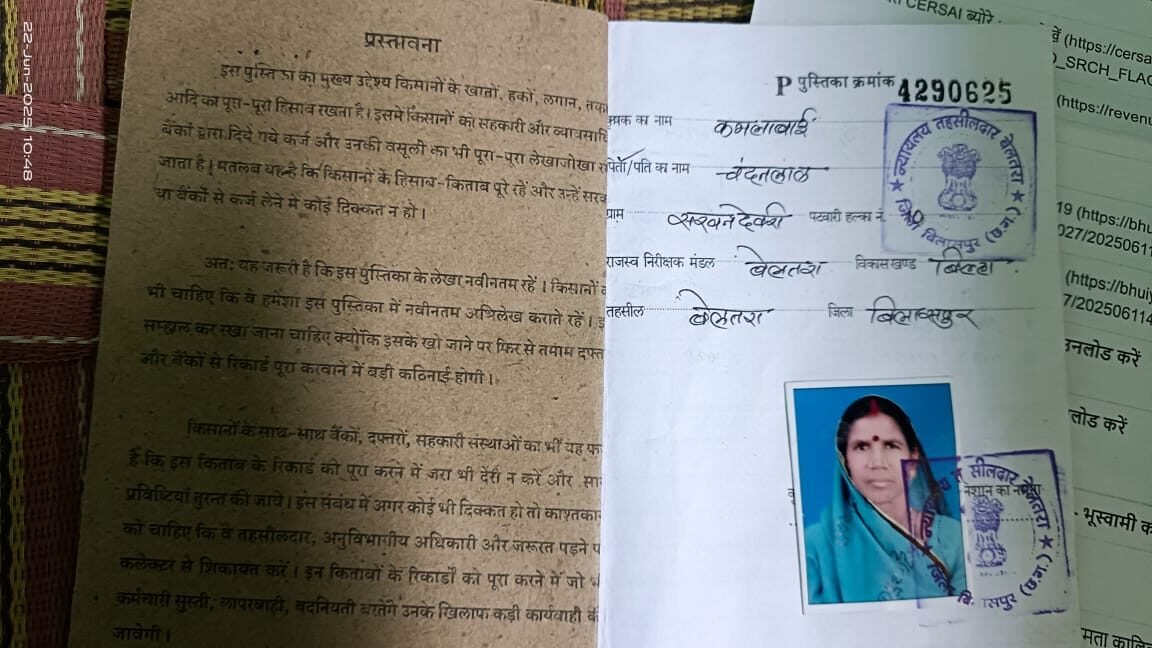 22-Jun-2025, 10:48
प्रस्तावना
इस पुस्तिका का मुख्य उद्देश्य किसानों के खातों, हकों, लगान,
आदि का पूरा-पूरा हिसाब रखना है। इसमें किसानों को सहकारी और
बैंकों द्वारा दिये गये कर्ज और उनकी वसूली का भी पूरा-पूरा लेखाजोखा
जाता है। मतलब यह है कि किसानों के हिसाब-किताब पूरे रहें और उन्हें
या बैंकों से कर्ज लेने में कोई दिक्कत न हो।
अतः यह जरूरी है कि इस पुस्तिका के लेखा नवीनतम रहें। किसानों
भी चाहिए कि वे हमेशा इस पुस्तिका में नवीनतम अभिलेख कराते रहें।
सम्हाल कर रखा जाना चाहिए क्योंकि इसके खो जाने पर फिर से तमाम
और बैंकों से रिकार्ड पूरा करवाने में बड़ी कठिनाई होगी।
किसानों के साथ-साथ बैंकों, दफ्तरों, सहकारी संस्थाओं का भी यह
है कि इस किताब के रिकार्ड को पूरा करने में जरा भी देरी न करें और
प्रविष्टियां तुरन्त की जावे। इस संबंध में अगर कोई भी दिक्कत हो तो
को चाहिए कि वे तहसीलदार, अनुविभागीय अधिकारी और जरूरत पड़ने
कलेक्टर से शिकायत करें। इन किताबों के रिकार्डों को पूरा करने में जो
कर्मचारी सुस्ती, लापरवाही, बदनियती बरतेंगे उनके खिलाफ कड़ी कार्यवाही की
जावेगी।
P पुस्तिका क्रमांक 4290625
का नाम कमलाबाई
पिता/पति का नाम चंदनलाल
ग्राम पटवारी हल्का नं.
राजस्व निरीक्षक मंडल बेलतरा विकास खण्ड बिल्हा
तहसील बेलतरा जिला बिलासपुर
न्यायालय तहसीलदार बेलतरा
जिला बिलासपुर (छ.ग.)
CERSAI ब्योरे
(https://cersa
_SRCH_FLAG
(https://reven
19 (https://bhu
027/20250611
(https://bhuiy
7/202506114
उनलोड करें
लोड करें
भूस्वामी